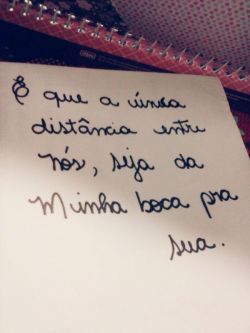 E que a única
distância entre
nós, seja da
Minha boca pra
sua.